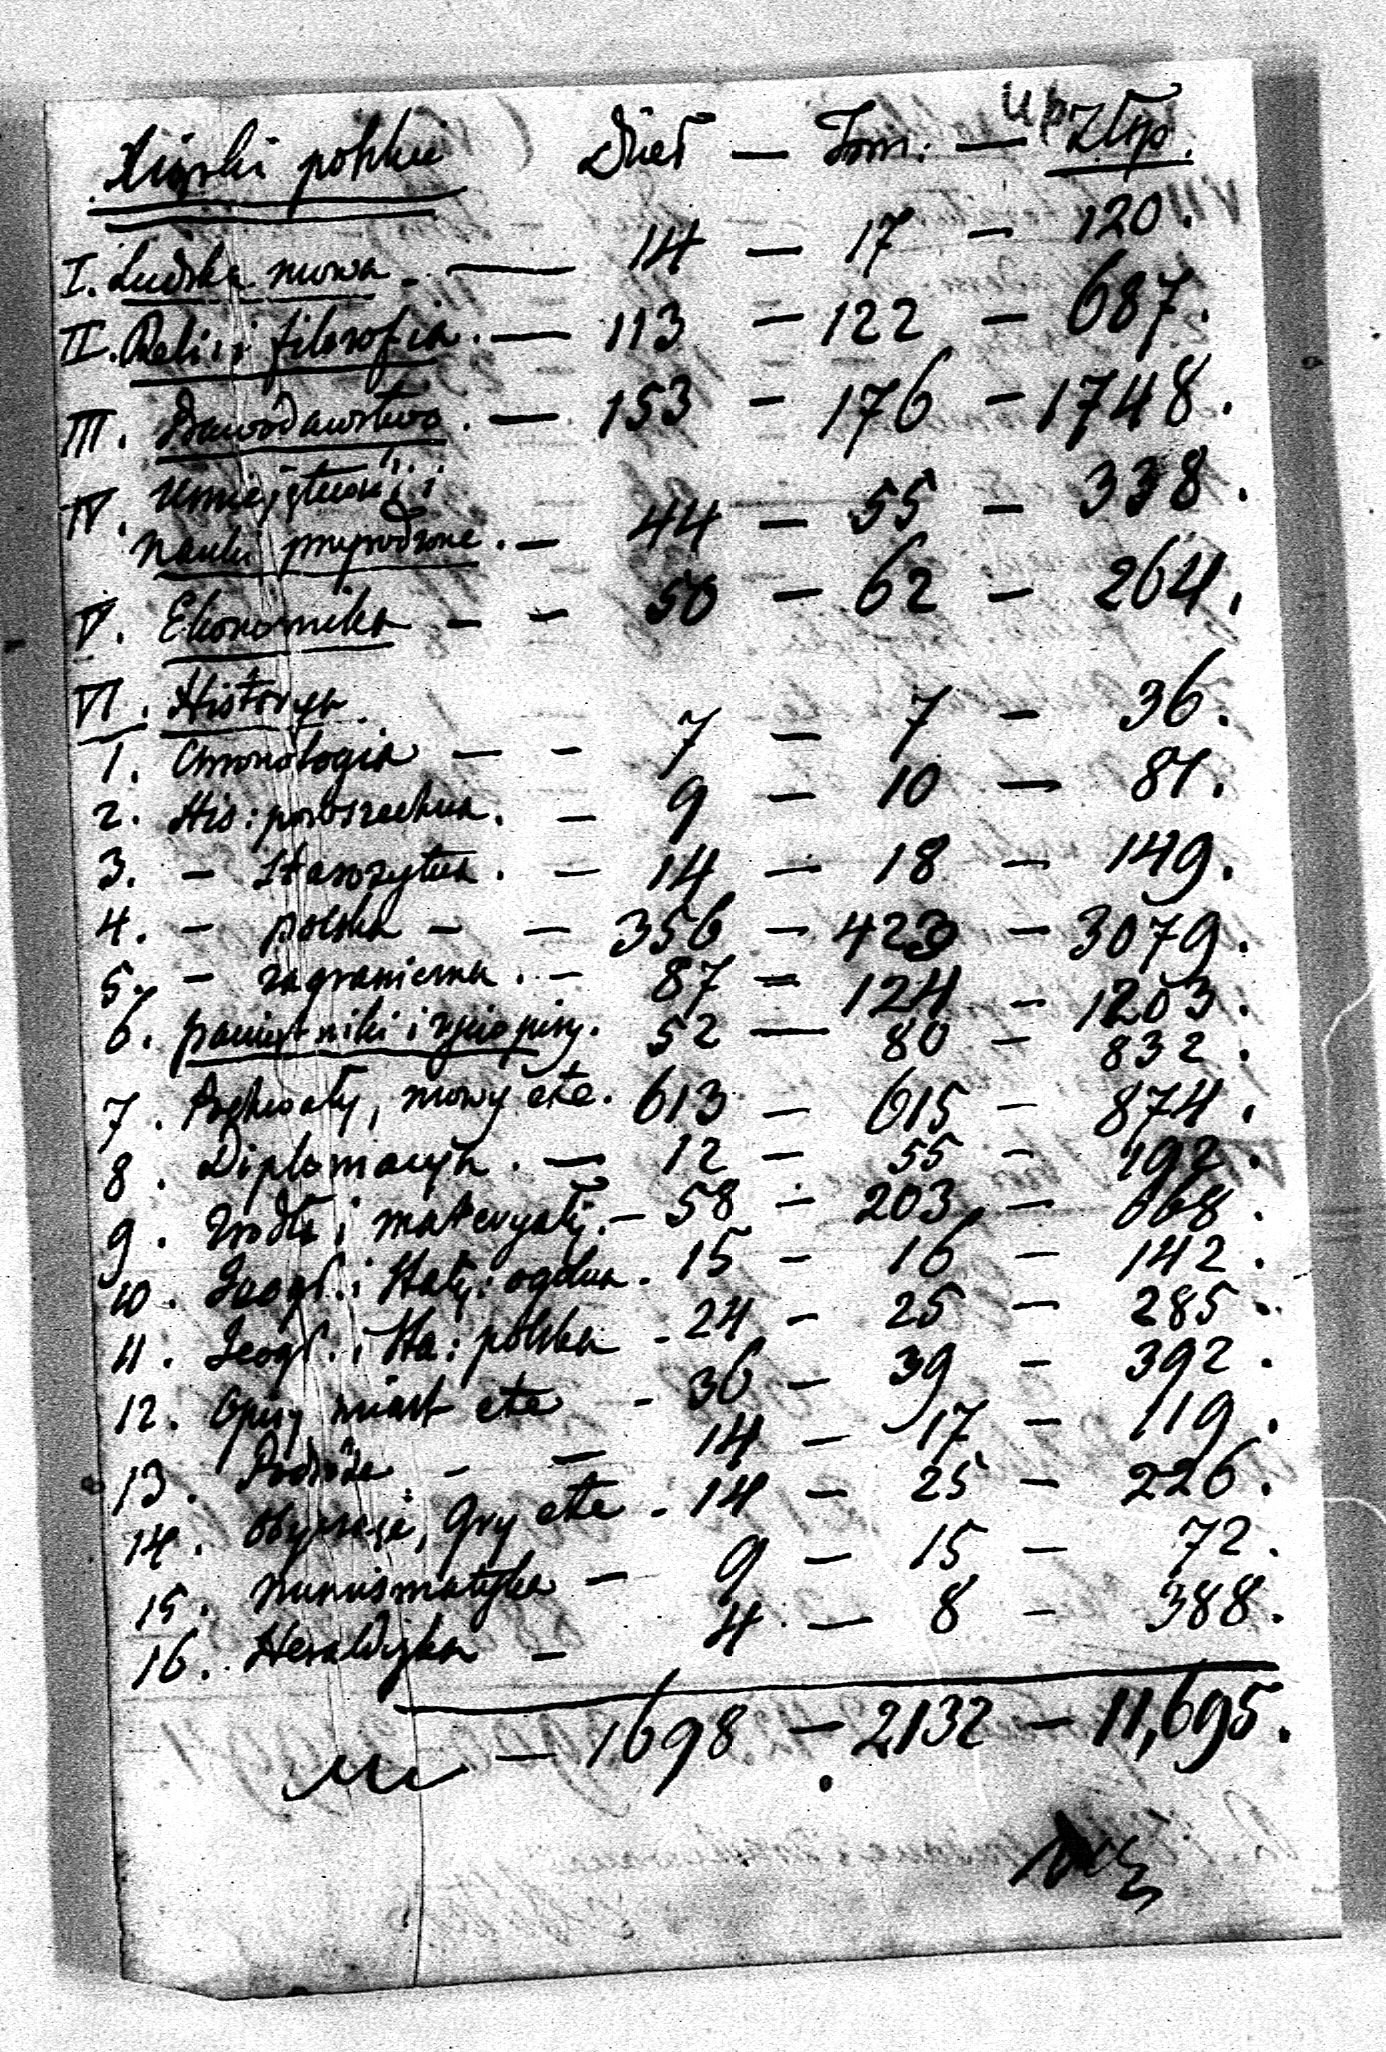 Xiążki polskie Dzieł — Tom: — Złtp.
I. Ludzka mowa. — 14 — 17 — 120.
II. Reli: i filozofia. — 113 — 122 — 687.
III. Prawodawstwo. — 153 — 176 — 1748.
IV. Umiejętności i
nauki przyrodzone. — 44 — 55 — 338.
V. Ekonomika — — 50 — 62 — 264.
VI. Historya.
1. Chronologia — — 7 — 7 — 36.
2. His: powszechna. — 9 — 10 — 81.
3. — Starożytna. — 14 — 18 — 149.
4. — polska — — 356 — 423 — 3079.
5. — zagraniczna. — 87 — 124 — 1203.
6. pamiętniki i życiopisy. 52 — 80 — 832.
7. Pochwały, mowy etc. 613 — 615 — 874.
8. Diplomacya. — 12 — 55 — 192.
9. Źrodła i materyały. — 58 — 203 — 668.
10. Jeogr. i Staty: ogólna. 15 — 16 — 142.
11. Jeogr. i Sta: polska — 24 — 25 — 285.
12. Opisy miast etc — 36 — 39 — 392.
13. Podróże — — 14 — 17 — 119.
14. Obyczaje, Gry etc — 14 — 25 — 226.
15. Numismatyka — 9 — 15 — 72.
16. Heraldyka — 4 — 8 — 388.
— 1698 — 2132 — 11,695.